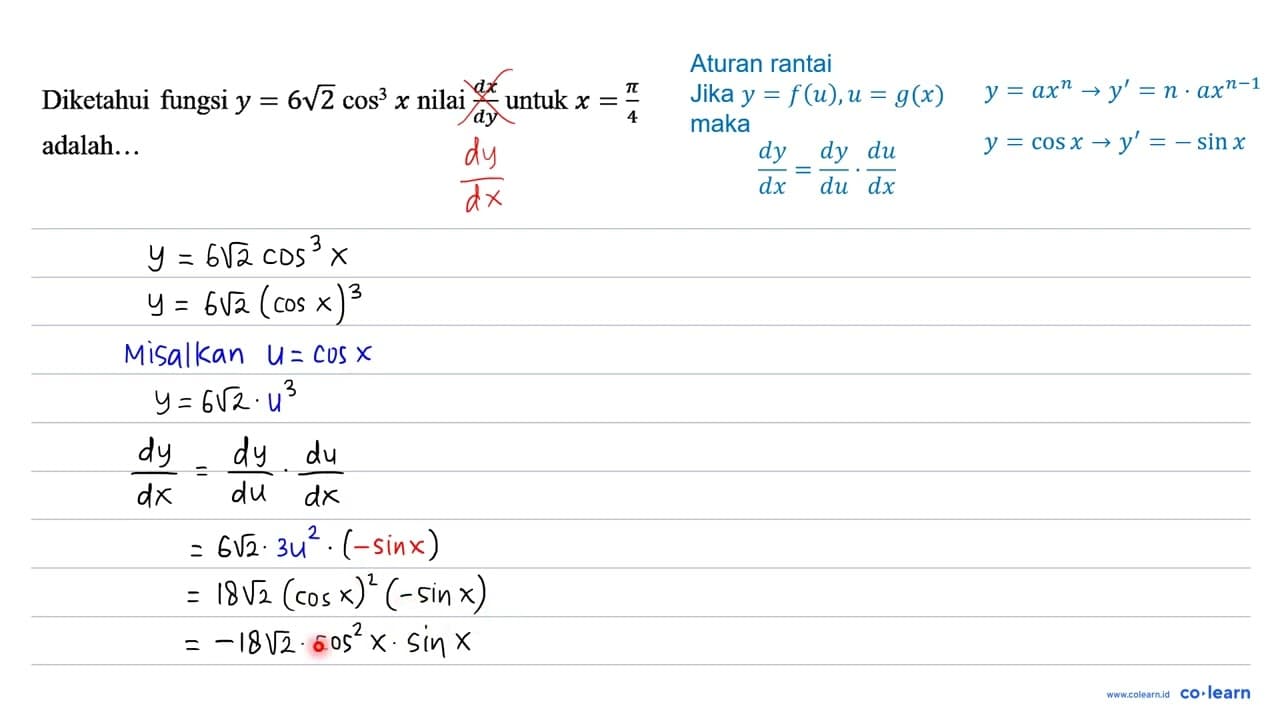 Diketahui fungsi y = 6√2 cos³ x nilai dx/dy untuk x = π/4
adalah...
dy/dx
Aturan rantai
Jika y = f(u), u = g(x)
maka
dy/dx = dy/du · du/dx
y = axⁿ → y′ = n · axⁿ⁻¹
y = cos x → y′ = − sin x
y = 6√2 cos³ x
y = 6√2 (cos x)³
Misalkan u = cos x
y = 6√2 · u³
dy/dx = dy/du · du/dx
= 6√2 · 3u² · (−sin x)
= 18√2 (cos x)² (−sin x)
= −18√2 · cos² x · sin x
www.colearn.id co·learn